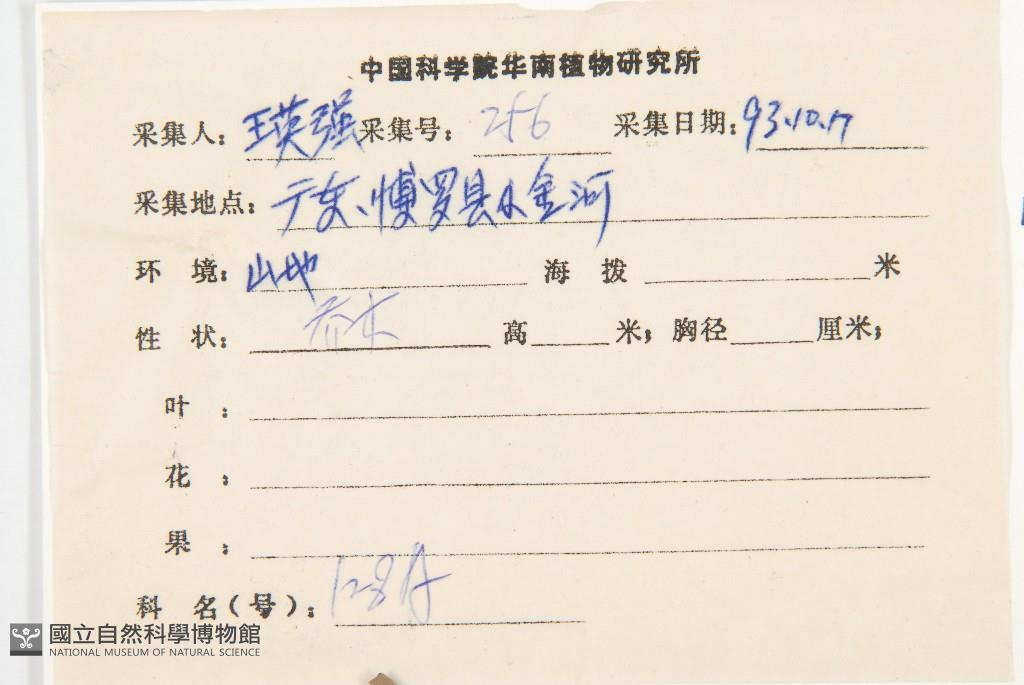 中国科学院华南植物研究所
采集人: 王英强 采集号: 256 采集日期: 93.10.17
采集地点: 广东、博罗县小金河
环 境: 山地 海 拨 米
性 状: 乔木 高 米; 胸径 厘米;
叶 :
花 :
果 :
科 名(号): 128A
國立自然科學博物館
NATIONAL MUSEUM OF NATURAL SCIENCE